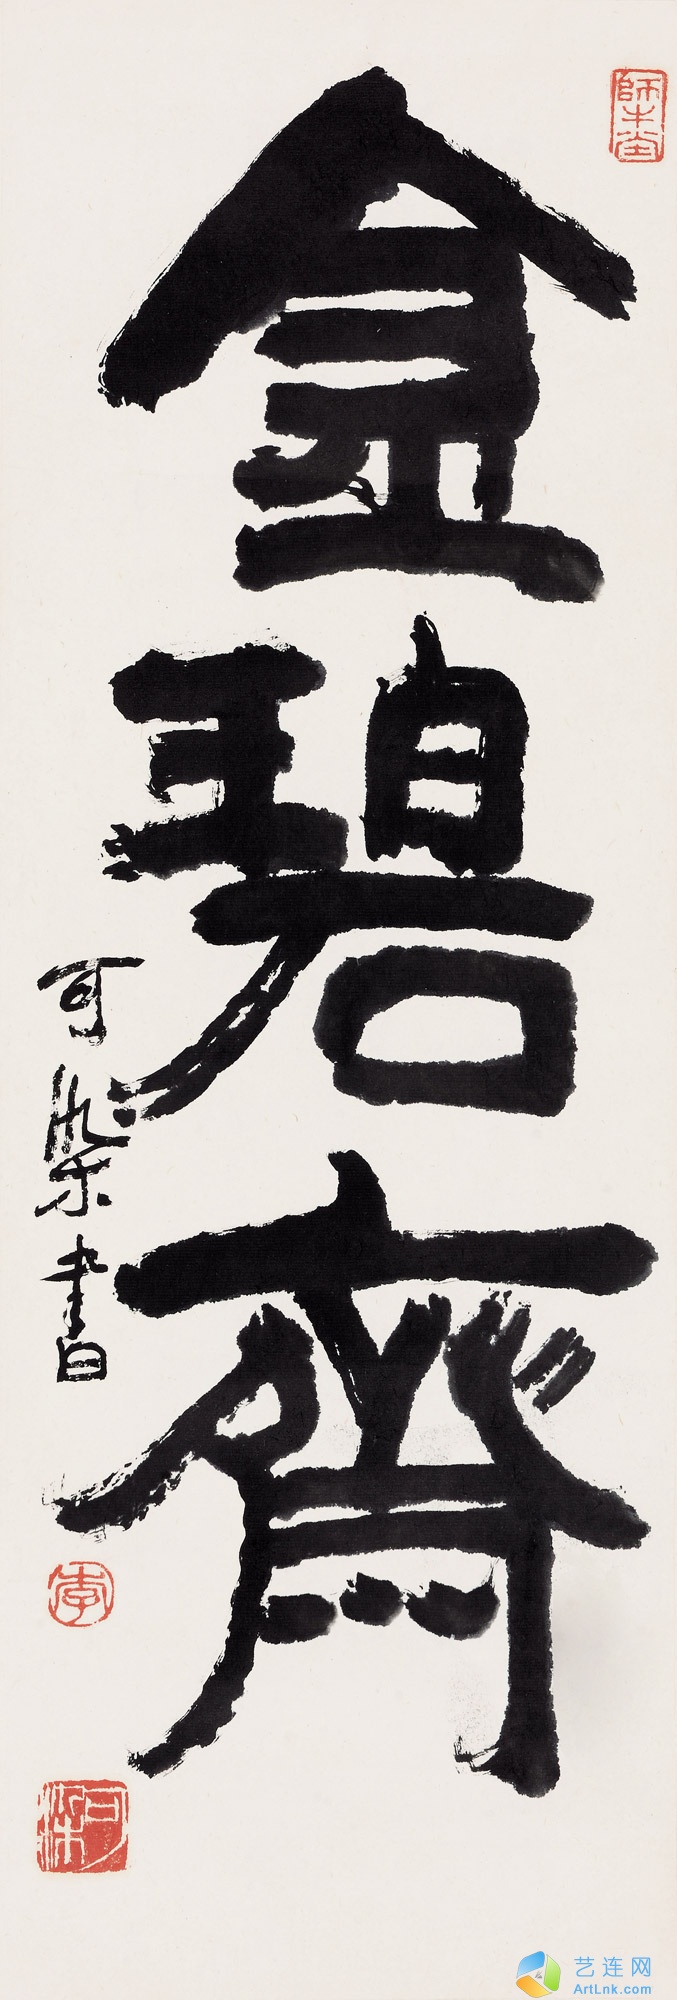 師牛堂
金碧齋
可染書
李
可染
艺连网
ArtLnk.com